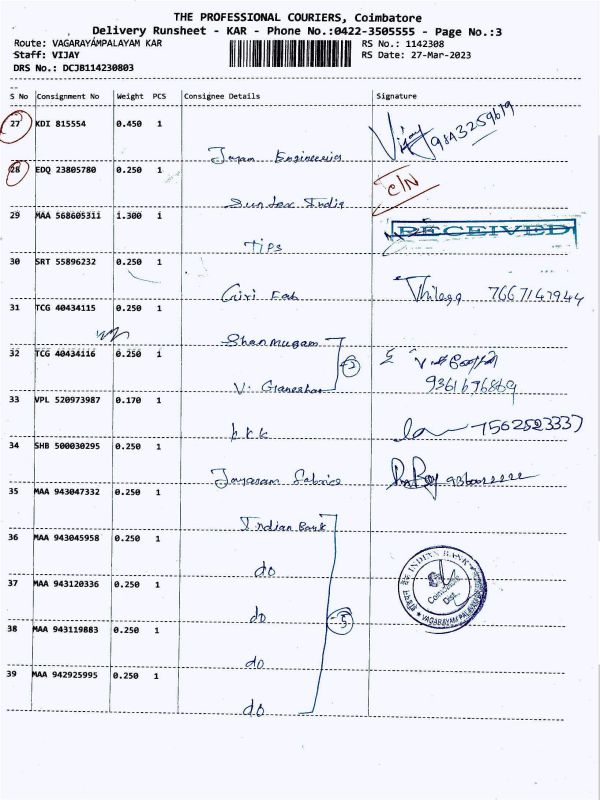 THE PROFESSIONAL COURIERS, Coimbatore
Delivery Runsheet - KAR - Phone No.:0422-3505555 - Page No.:3
Route: VAGARAYAMPALAYAM KAR RS No.: 1142308
Staff: VIJAY RS Date: 27-Mar-2023
DRS No.: DCJB114230803
S No Consignment No Weight PCS Consignee Details Signature
27 KDI 815554 0.450 1
9843259619
28 EDQ 23805780 0.250 1
C/N
Suntex India
29 MAA 568605311 1.300 1
RECEIVED
TIPS
30 SRT 55896232 0.250 1
Giri Fab Thilaga 7667143944
31 TCG 40434115 0.250 1
Shanmugam
32 TCG 40434116 0.250 1
2
V. Ganeshan 9361676869
33 VPL 520973987 0.170 1
kkk 7562523337
34 SHB 500030295 0.250 1
Jayaram Fabrics
35 MAA 943047332 0.250 1
Indian Bank
36 MAA 943045958 0.250 1
do
INDIAN BANK
Coimbatore
Dist.
37 MAA 943120336 0.250 1
do 5
38 MAA 943119883 0.250 1
do
39 MAA 942925995 0.250 1
do